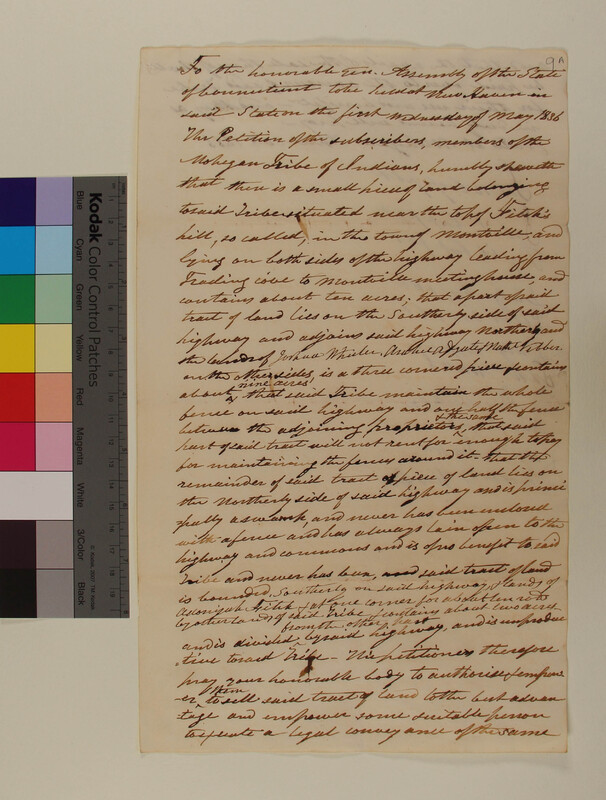 9 A
To the honorable Gen. Assembly of the State
of Connecticut to be held at New Haven in
said State on the first Wednesday of May 1836
The Petition of the subscribers, members of the
Mohegan Tribe of Indians, humbly sheweth
that there is a small piece of land belonging
to said Tribe situated near the top of Fitch's
hill, so called, in the town of Montville, and
lying on both sides of the highway leading from
Trading cove to Montville meeting house and
contains about ten acres; that a part of said
tract of land lies on the Southerly side of said
highway and adjoins said highway Northerly and
the lands of Joshua Wheeler,
on the other sides, is a three cornered piece & contains
nine acres,
about that said Tribe maintain the whole
fence on said highway and one half the fence
the whole
between the adjoining proprietors, that said
part of said tract will not rent for enough to pay
for maintaining the fences around it that the
remainder of said tract or piece of land lies on
the Northerly side of said highway and is princi
pally a swamp, and never has been inclosed
with a fence and has always lain open to the
highway and commons and is of no benefit to said
Tribe and never has been, and said tract of land
is bounded, Southerly on said highway, & lands of
Fitch & at one corner for about ten rods
by other lands of said Tribe & contains about two acres
from the other part
and is divided by said highway, and is unproduc
tive to said Tribe – The petitioners therefore
pray your honorable body to authorise & empow
er them to sell said tract of land to the best advan
tage and empower some suitable person
to execute a legal conveyance of the same
Kodak Color Control Patches
Blue
Cyan
Green
Yellow
Red
Magenta
White
3/Color
Black